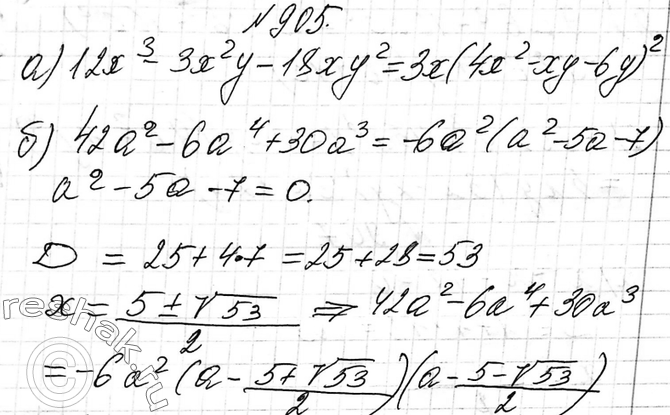 №905.
а) 12x³ - 3x²y - 18xy² = 3x(4x² - xy - 6y)²
б) 42a² - 6a⁴ + 30a³ = -6a²(a² - 5a - 7)
a² - 5a - 7 = 0.
D = 25 + 4·7 = 25 + 28 = 53
x = (5 ± √53)/2 ⇒ 42a² - 6a⁴ + 30a³
= -6a²(a - (5 + √53)/2)(a - (5 - √53)/2)
©reshak.ru